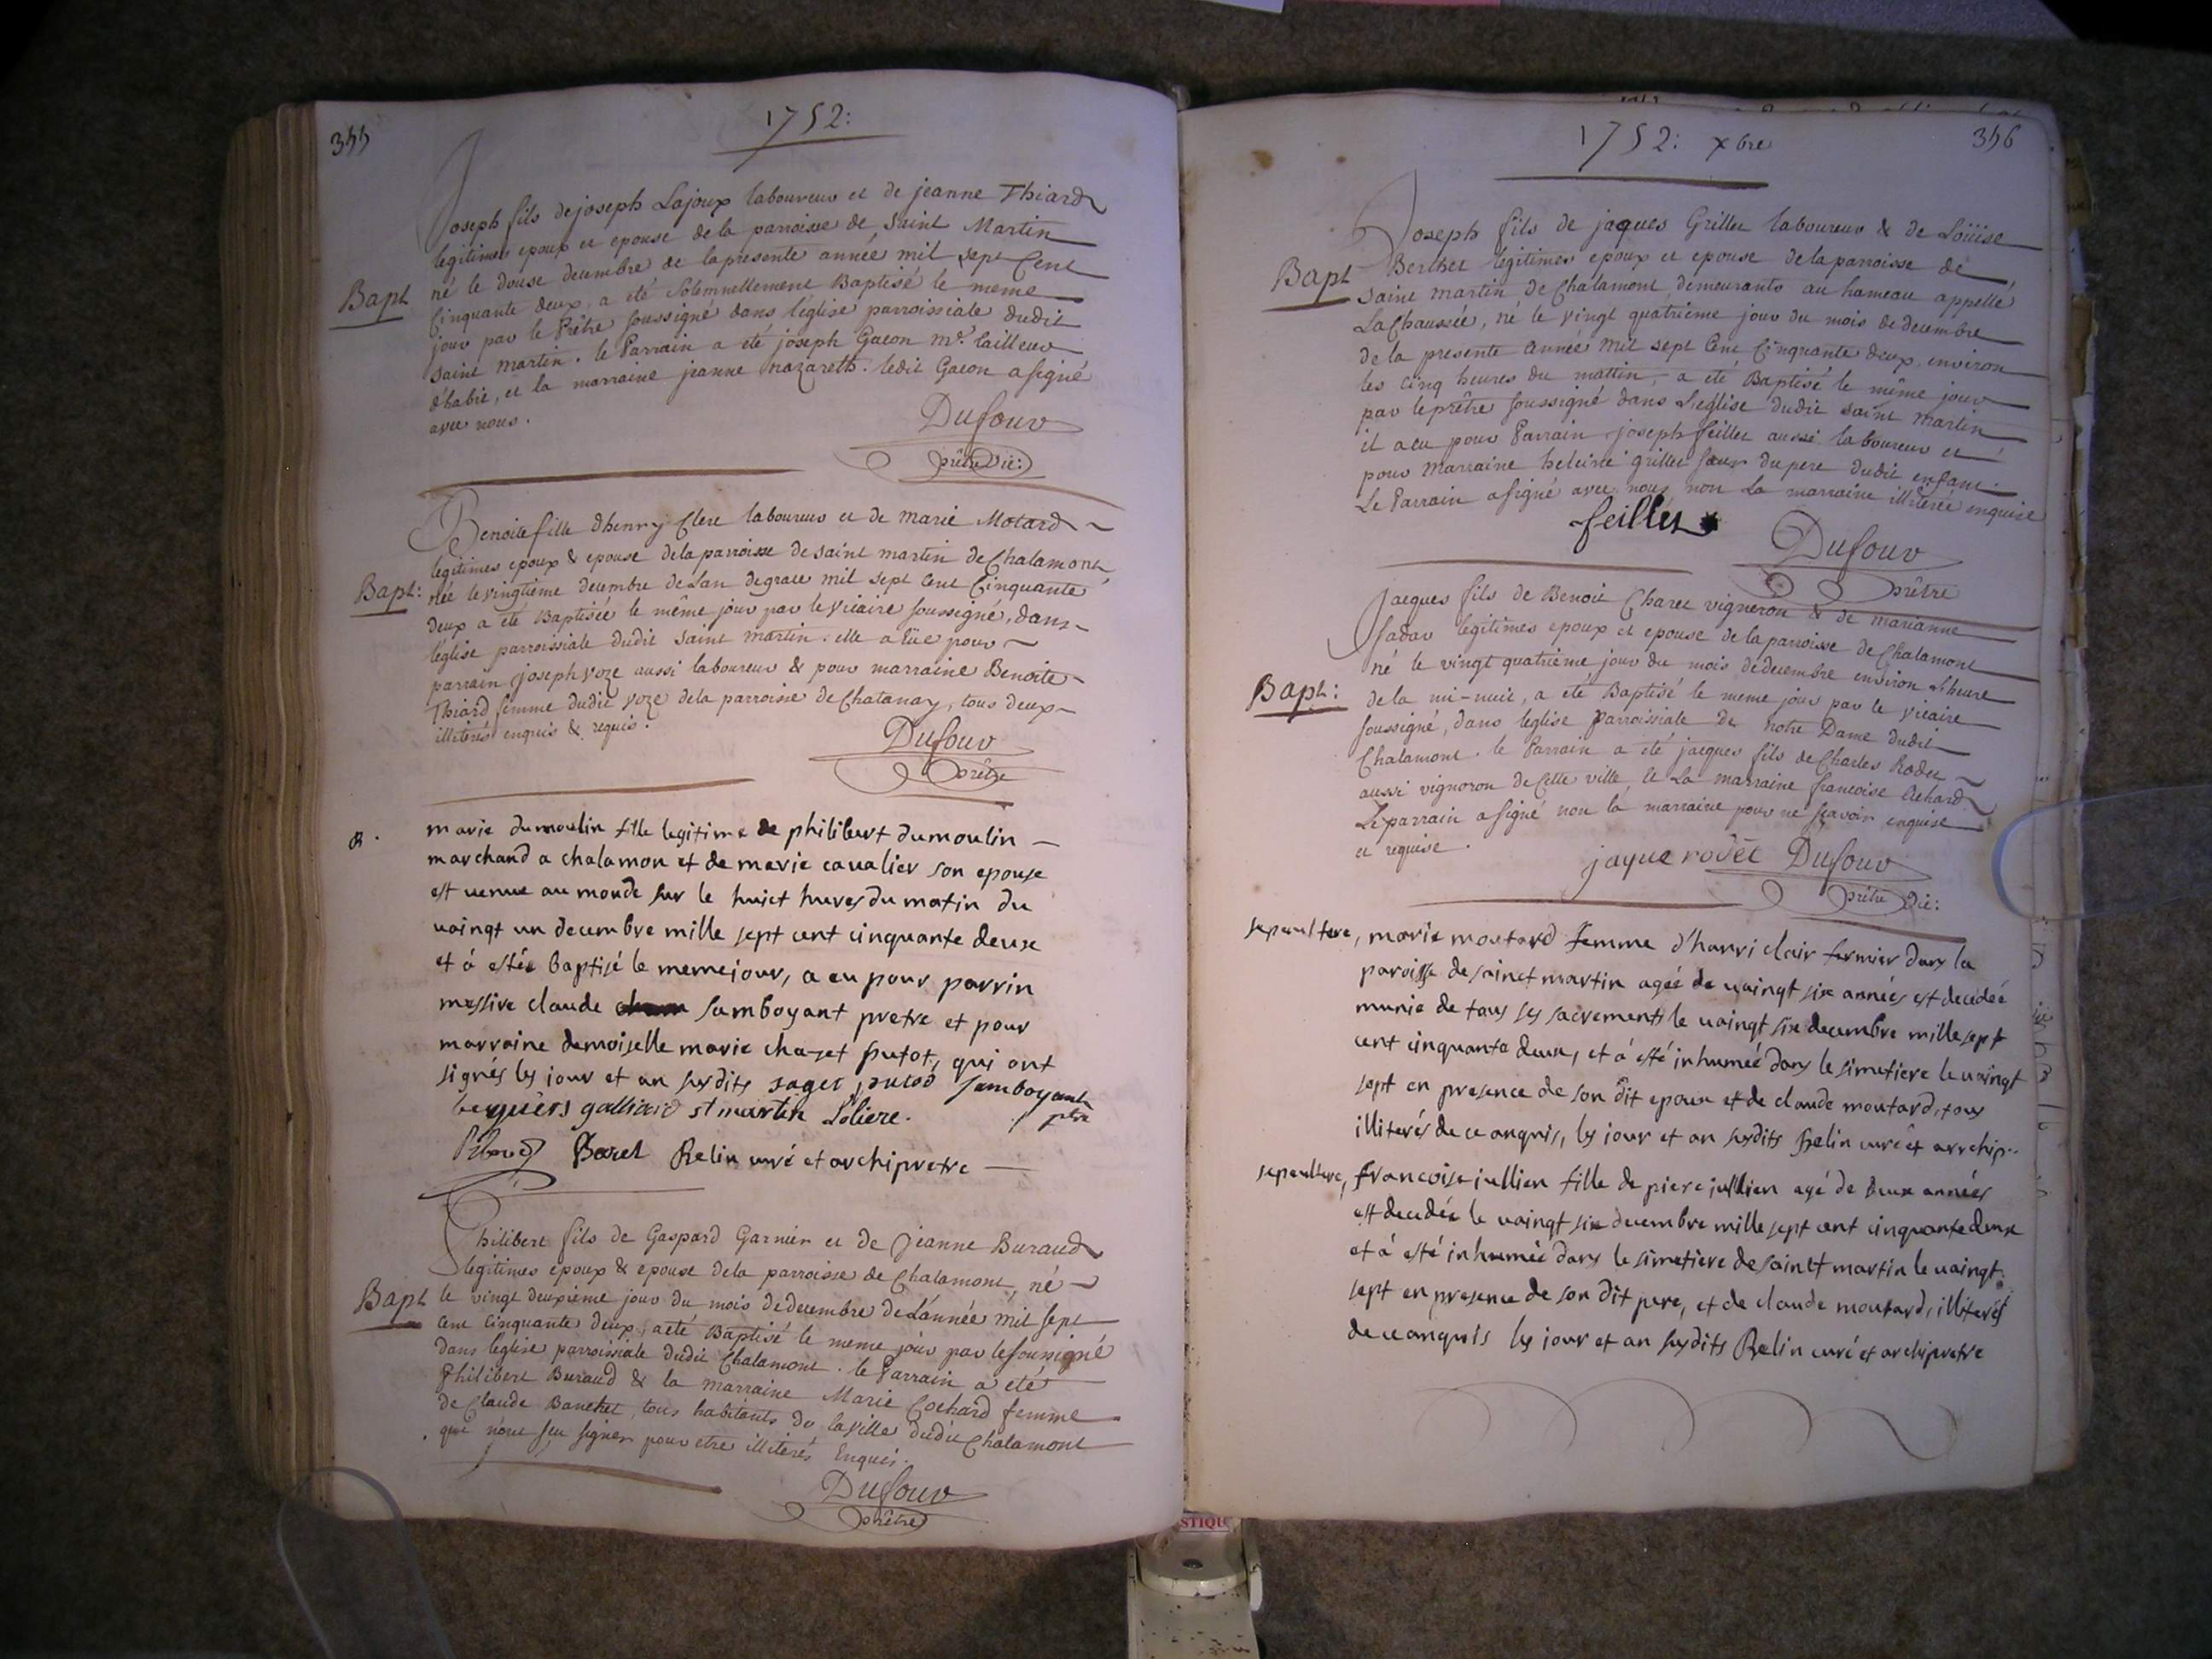 355
1752:
Joseph fils de joseph Lajoux laboureur et de jeanne Thiard
legitimes epoux et epouse de la parroisse de Saint Martin
né le douse decembre de la presente année mil sept Cent
Bapt
Cinquante deux, a eté Solemnellement Baptisé le meme
jour par le Prêtre soussigné dans l'église parroissiale dudit
Saint Martin. le Parrain a été joseph Gacon md. tailleur
d'habit, et la marraine jeanne nazareth. ledit Gacon a signé
avec nous.
Dufour
prêtre vic:
Benoite fille dhenry Clerc laboureur et de marie Motard
legitimes epoux & epouse dela parroisse de saint martin de Chalamont,
Bapt:
née le vingtieme decembre de Lan de grace mil sept cent Cinquante
deux a eté Baptisée le même jour par le vicaire soussigné, dans
léglise parroissiale dudit saint martin. elle a Eüe pour
parrain joseph voze aussi laboureur & pour marraine Benoite
Thiard femme dudit voze dela parroisse de Chatanay, tous deux
illiterés enquis & requis.
Dufour
prêtre
B.
marie dumoulin fille legitime de philibert dumoulin
marchand a chalamon et de marie cavalier son epouse
est venue au monde sur le huict hures du matin du
vaingt un decembre mille sept cent cinquante deux
et á estée baptisé le meme jour, a eu pour parrin
messire claude samboyant pretre et pour
marraine demoiselle marie chazet putot, qui ont
signés les jour et an susdits saget putod samboyant
ptre
galliard st martin Loliere.
Borel Relin curé et archipretre
Philibert fils de Gaspard Garnier et de Jeanne Buraud
legitimes epoux & epouse dela parroisse de Chalamont, né
Bapt
le vingt deuxieme jour du mois de decembre de L'année mil sept
cent Cinquante deux, a eté Baptisé le meme jour par le soussigné
dans l'église parroissiale dudit Chalamont. le Parrain a eté
Philibert Buraud & la marraine Marie Cochard femme
de Claude Banchet, tous habitants de la ville dudit Chalamont
qui n'ont sçu signer pour etre illiterés Enquis.
Dufour
prêtre
1752: xbre
356
Joseph fils de jaques Grillet laboureur & de Loüise
Bapt
Berthet légitimes epoux et epouse dela parroisse de
saint martin de Chalamont, demeurants au hameau appellé
La Chaussée, né le vingt quatrième jour du mois de decembre
de la presente année mil sept Cent Cinquante deux, environ
les cinq heures du mattin, a eté Baptisé le même jour
par le prêtre soussigné dans L'eglise dudit saint martin
il a eu pour Parrain joseph feillet aussi laboureur et
pour marraine heleine grillet sœur du pere dudit enfant.
Le Parrain a signé avec nous, non La marraine illiterée enquise
feillet
Dufour
prêtre
Jacques fils de Benoit Charet vigneron & de marianne
fadar legitimes epoux et epouse de la parroisse de Chalamont
né le vingt quatrième jour du mois de decembre environ L'heure
Bapt:
de la mi-nuit, a eté Baptisé le meme jour par le vicaire
soussigné, dans leglise parroissiale de notre Dame dudit
Chalamont. le Parrain a eté jacques fils de Charles Rodet
aussi vigneron de Cette ville, et La marraine francoise Achard
Le parrain a signé non la marraine pour ne sçavoir enquise
et requise.
jaque rodet Dufour
prêtre vic:
sepeulture,
marie moutard femme d'hanri clair fermier dans la
paroisse de sainct martin agée de vaingt six années est decedée
munie de tous ses sacrements le vaingt six decembre mille sept
cent cinquante deux, et á esté inhumée dans le simetiere le vaingt
sept en presence de son dit epoux et de claude moutard, tous
illiterés de ce anquis, les jour et an susdits Relin curé et archip..
sepeulture,
francoise jullien fille de piere jullien agé de deux années
est decedée le vaingt six decembre mille sept cent cinquante deux
et á esté inhumée dans le simetiere de sainct martin le vaingt
sept en presence de son dit pere, et de claude moutard, illiterés
de ce anquis les jour et an susdits Relin curé et archipretre
STIQU